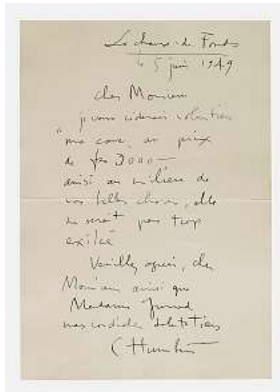 La Chaux-de-Fonds
le 5 juin 1949
cher Monsieur
je vous céderais volontiers
"ma cave" au prix
de frs 3000 —
ainsi au milieu de
vos belles choses, elle
ne serait pas trop
exilée
Veuillez agréer, cher
Monsieur ainsi que
Madame
mes cordiales salutations
C Humbert